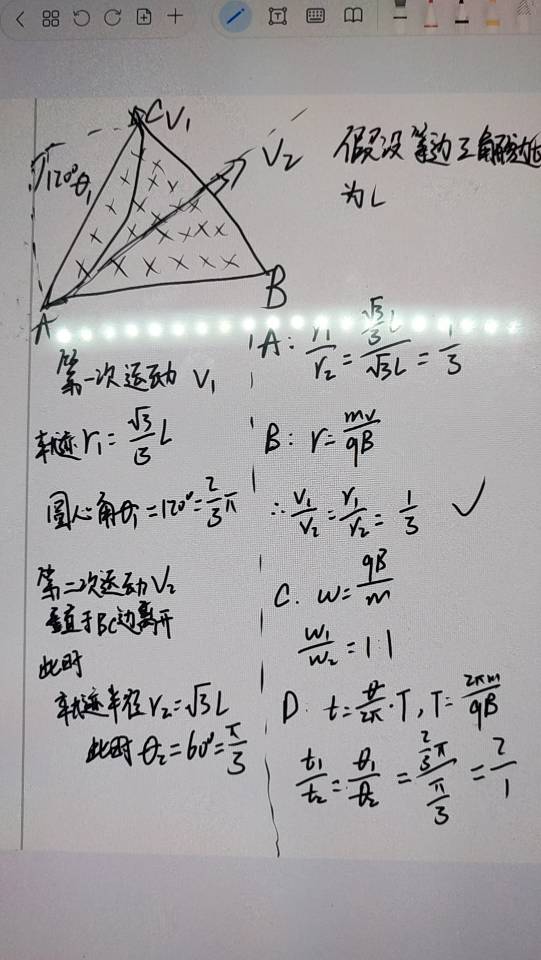 C V₁
V₂
120° θ₁
A
B
假设等边三角形边长
为L
第一次运动 V₁
轨迹r₁=√3/3 L
圆心角θ₁=120°=2/3π
第二次运动V₂
垂直于BC边离开
此时
轨迹半径r₂=√3L
此时θ₂=60°=π/3
A: r₁/r₂=(√3/3 L)/(√3L)=1/3
B: r=mv/qB
∴V₁/V₂=r₁/r₂=1/3 ✓
C. w=qB/m
w₁/w₂=1:1
D. t=θ/2π·T, T=2πm/qB
t₁/t₂=θ₁/θ₂=(2/3π)/(π/3)=2/1